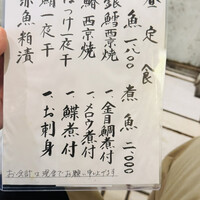 昼定食
魚一八〇〇
銀鱈西京焼
鰆西京焼
ほっけ一夜干
鯖一夜干
赤魚粕漬
煮魚二〇〇〇
一、金目鯛煮付
一、メロウ煮付
一、鰈煮付
一、お刺身
お会計は現金でお願い申し上げます